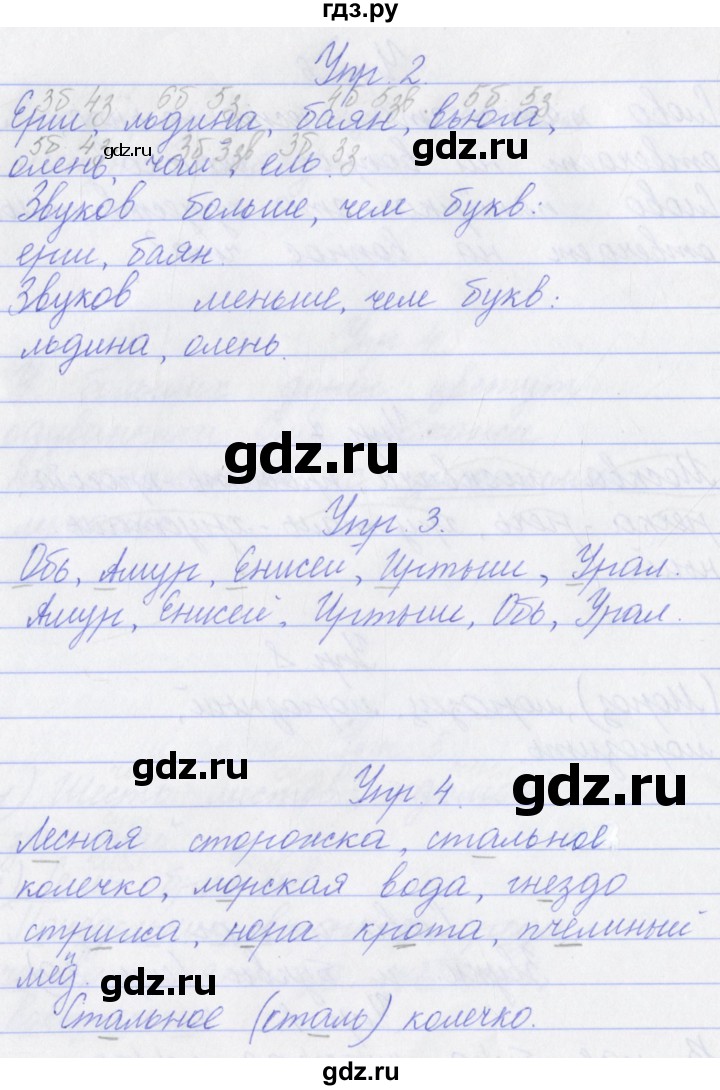 гдз.ру
Упр. 2.
3б 4з 6б 5з 4б 5зв 5б 5з
Ерш, льдина, баян, вьюга,
5б 4з 3б 3зв 3б 3з
олень, чай, ель.
gdz.ru
Звуков больше, чем букв:
ерш, баян.
Звуков меньше, чем букв:
льдина, олень.
gdz.ru
Упр. 3.
Обь, Амур, Енисей, Иртыш, Урал.
Амур, Енисей, Иртыш, Обь, Урал.
gdz.ru
Упр. 4.
gdz.ru
Лесная сторожка, стальное
колечко, морская вода, гнездо
стрижа, нора крота, пчелиный
мёд.
gdz.ru
Стальное (сталь) колечко.
гдз.ру